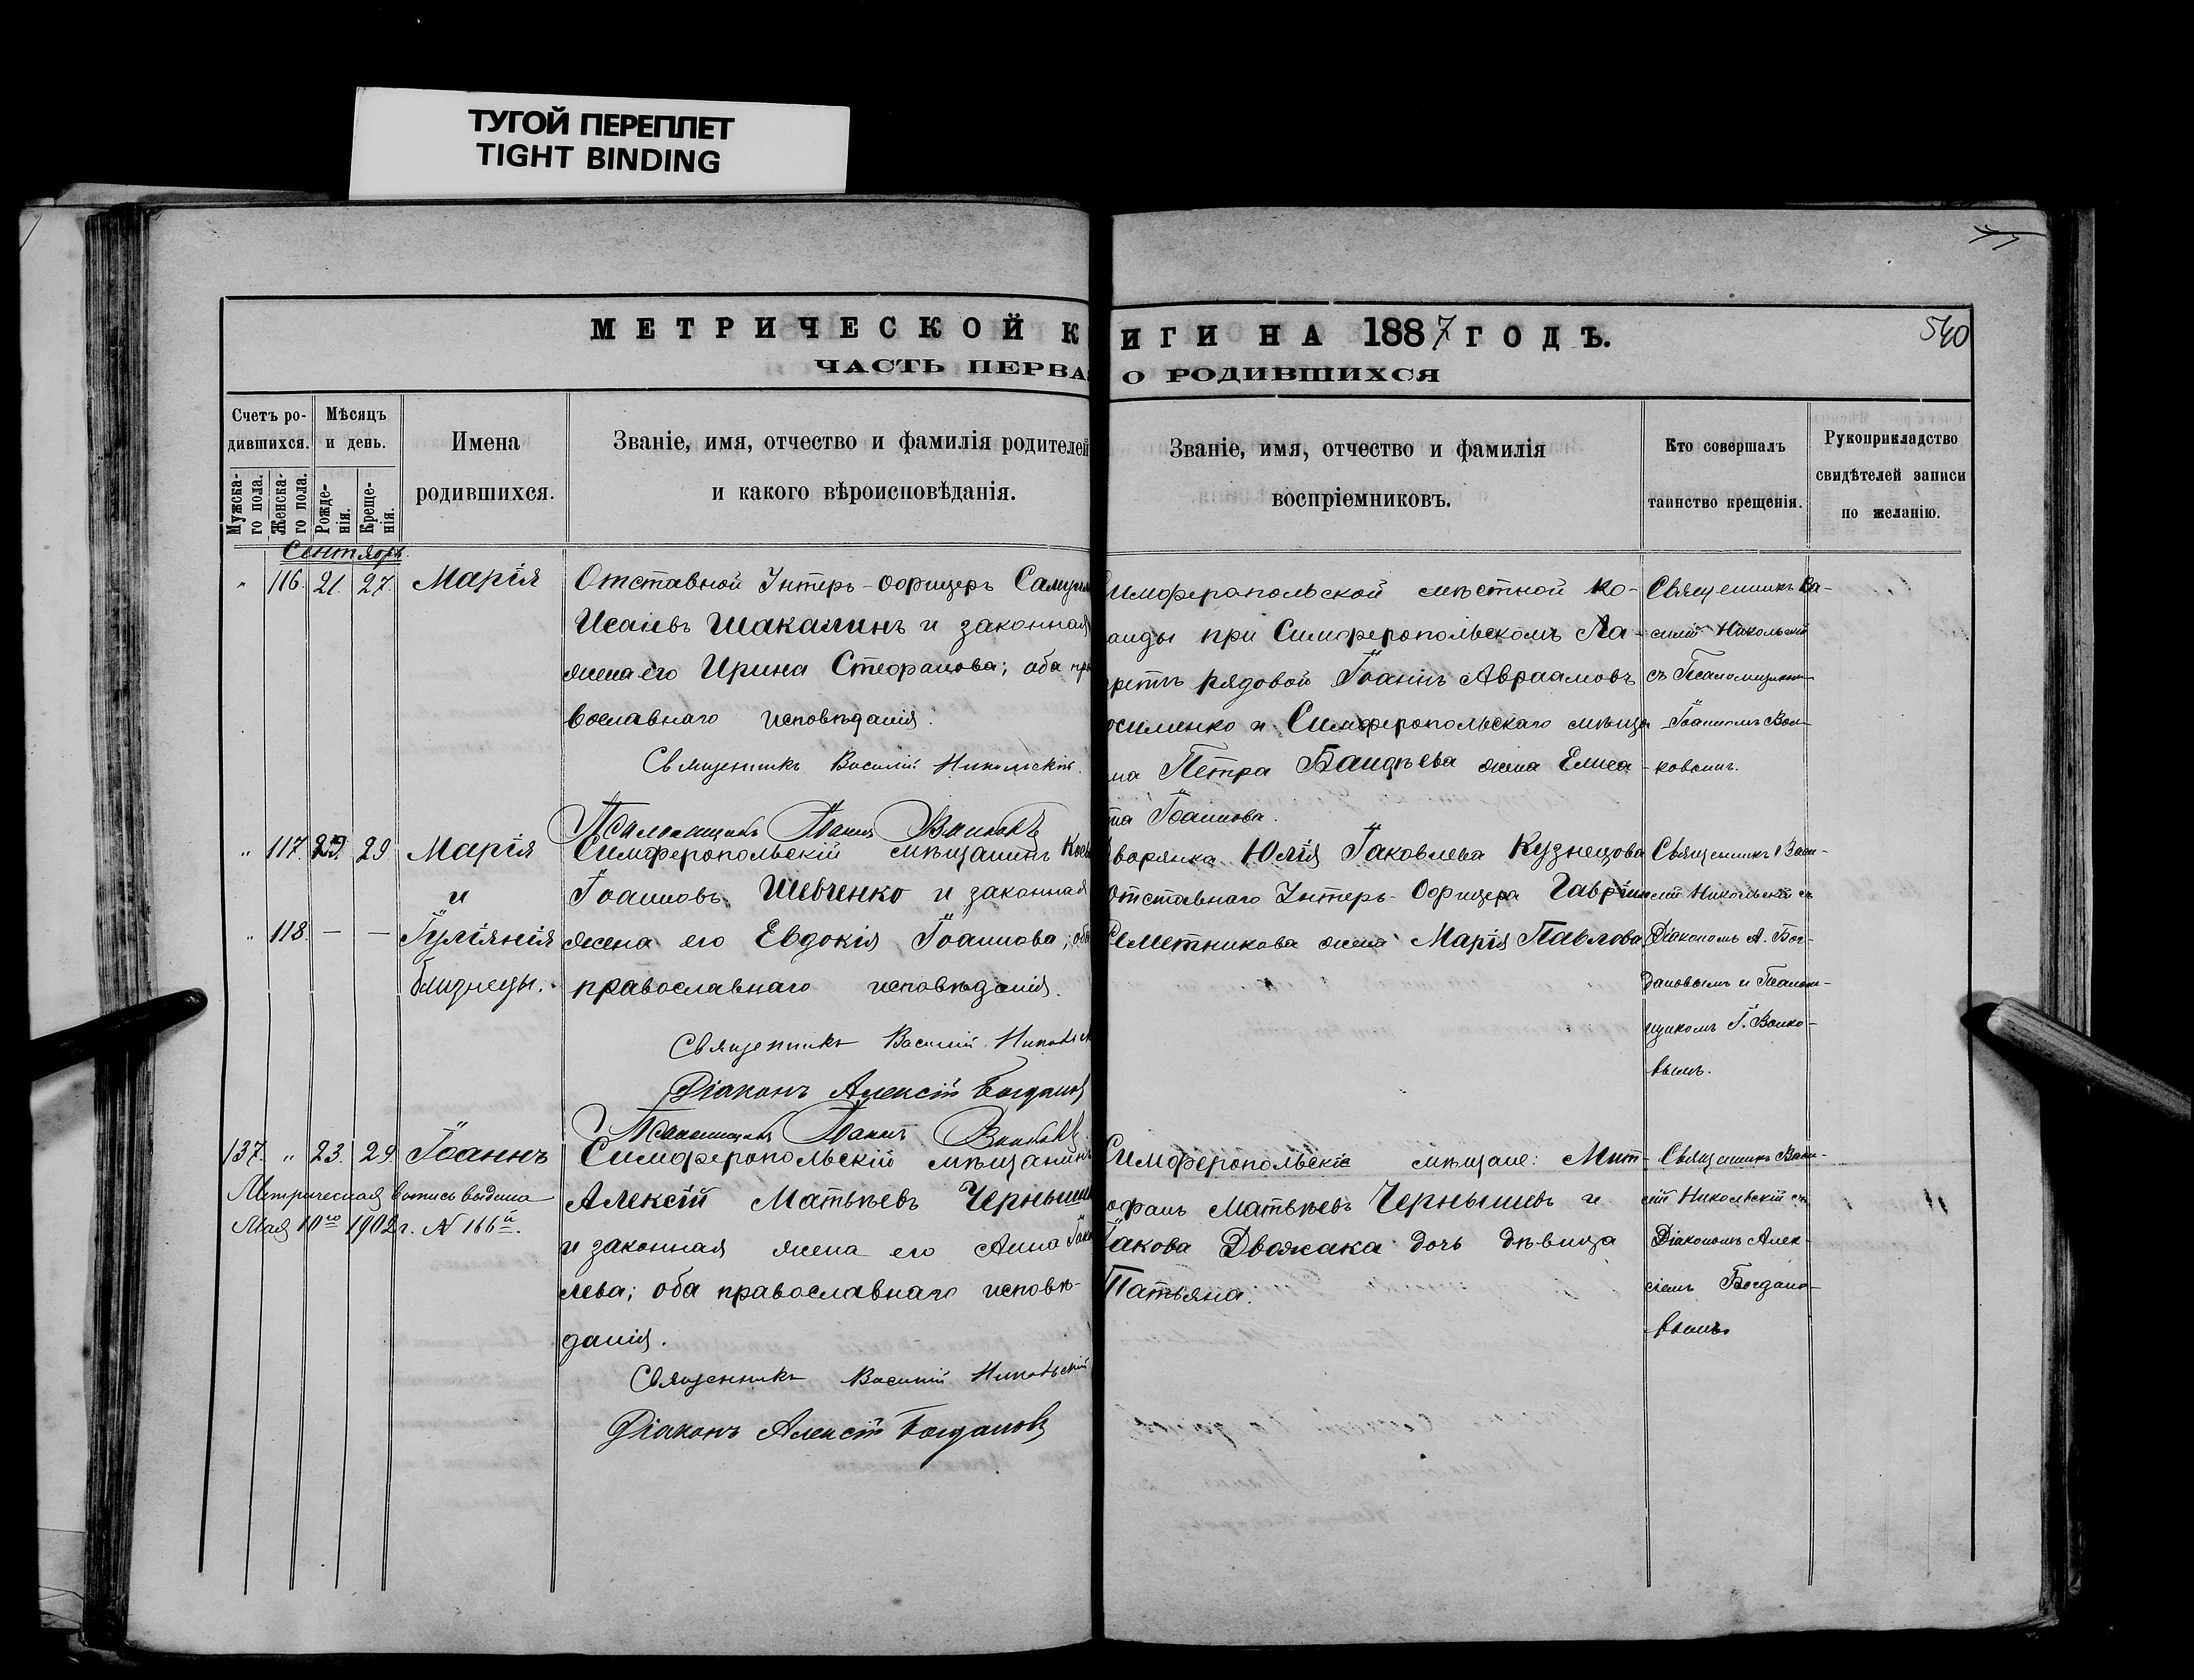 ТУГОЙ ПЕРЕПЛЕТ
TIGHT BINDING
МЕТРИЧЕСКОЙ К
ИГИ НА 1887 ГОДЪ.
540
ЧАСТЬ ПЕРВА
О РОДИВШИХСЯ
Счетъ ро-
дившихся.
Мужска-
го пола.
Женска-
го пола.
Мѣсяцъ
и день.
Рожде-
нія.
Креще-
нія.
Имена
родившихся.
Званіе, имя, отчество и фамилія родителей
и какого вѣроисповѣданія.
Званіе, имя, отчество и фамилія
воспріемниковъ.
Кто совершалъ
таинство крещенія.
Рукоприкладство
свидѣтелей записи
по желанію.
Сентябрь.
" 116. 21. 27. Марія
Отставной Унтеръ-офицеръ
Исаевъ Шакалинъ и законная
жена его Ирина Стефанова; оба пра
вославнаго исповѣданія.
Священникъ Василій Никольскій.
Псаломщикъ Іоаннъ
имферопольской мѣстной ко-
анды при Симферопольскомъ Ла-
ретѣ рядовой Іоаннъ Авраамовъ
осименко и Симферопольскаго мѣща
на Петра Бандѣева жена Елиса
та Іоаннова.
Священникъ Ва-
силій Никольскій
съ Псаломщикомъ
Іоанномъ Вол-
ковымъ.
" 117. 29 Марія
и
" 118. — — Іуліянія
близнецы.
Симферопольскій мѣщанинъ
Іоанновъ Шевченко и законная
жена его Евдокія Іоаннова; оба
православнаго исповѣданія.
Священникъ Василій
Діаконъ Алексій Богданов
Псаломщикъ Іоаннъ
ворянка Юлія Іаковлева Кузнецова
Отставнаго Унтеръ-Офицера Гавріи
Сметникова жена Марія Павлова.
Священникъ Васи-
лій Никольскій съ
Діакономъ А. Бог-
дановымъ и Псалом-
щикомъ І. Волко-
вымъ.
137. " 23. 29. Іоаннъ
Метрическая выпись выдана
Мая 10го 1902 г. № 166й.
Симферопольскій мѣщанинъ
Алексій Матвѣевъ Черныш
и законная жена его Анна Іако
лева; оба православнаго исповѣ-
данія.
Священникъ Василій Никольскій
Діаконъ Алексій Богдановъ
Симферопольскіе мѣщане: Мит-
офанъ Матвѣевъ Чернышевъ и
Іакова Дможака дочь дѣвица
Татьяна.
Священникъ Васи-
лій Никольскій съ
Діакономъ Алек-
сіемъ Богдано-
вымъ.